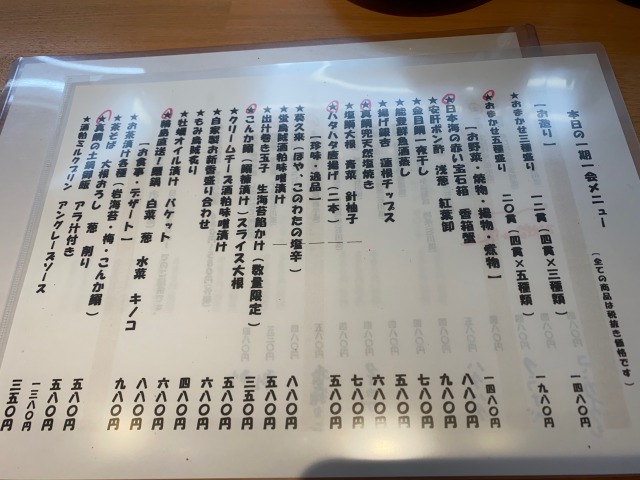 本日の一期一会メニュー
(全ての商品は税抜き価格です)
【お造り】
★おまかせ三種盛り 一二貫(四貫×三種類) 一四八〇円
★おまかせ五種盛り 二〇貫(四貫×五種類) 一九八〇円
【お野菜・焼物・揚物・煮物】
★日本海の赤い宝石箱 香箱蟹 一四八〇円
★安肝ポン酢 浅葱 紅葉卸 八八〇円
★金目鯛一夜干し 九八〇円
★能登鮮魚酒蒸し 七八〇円
★揚げ銀杏 蓮根チップス 五八〇円
★真鯛兜天然塩焼き 六八〇円
★塩鰤大根 青菜 針柚子 七八〇円
★ハタハタ唐揚げ(二本) 五八〇円
【珍味・逸品】
★莫久来(ほや・このわたの塩辛) 八八〇円
★蛍烏賊酒粕味噌漬け 五八〇円
★出汁巻き玉子 生海苔餡かけ(数量限定) 五八〇円
★こんか鰯(鰯糠漬け)スライス大根 三五〇円
★クリームチーズ酒粕味噌漬け 五八〇円
★自家製お新香盛り合わせ 六八〇円
★もみいか炙り
★牡蠣オイル漬け バケット 六八〇円
水菜 キノコ
【お食事・デザート】
★お茶漬け各種(岩海苔・梅・こんか鰯) 五八〇円
★茶そば 大根おろし 葱 削り 五八〇円
★真鯛の土鍋御飯 アラ汁付き 一三八〇円
アングレーズソース 三五〇円